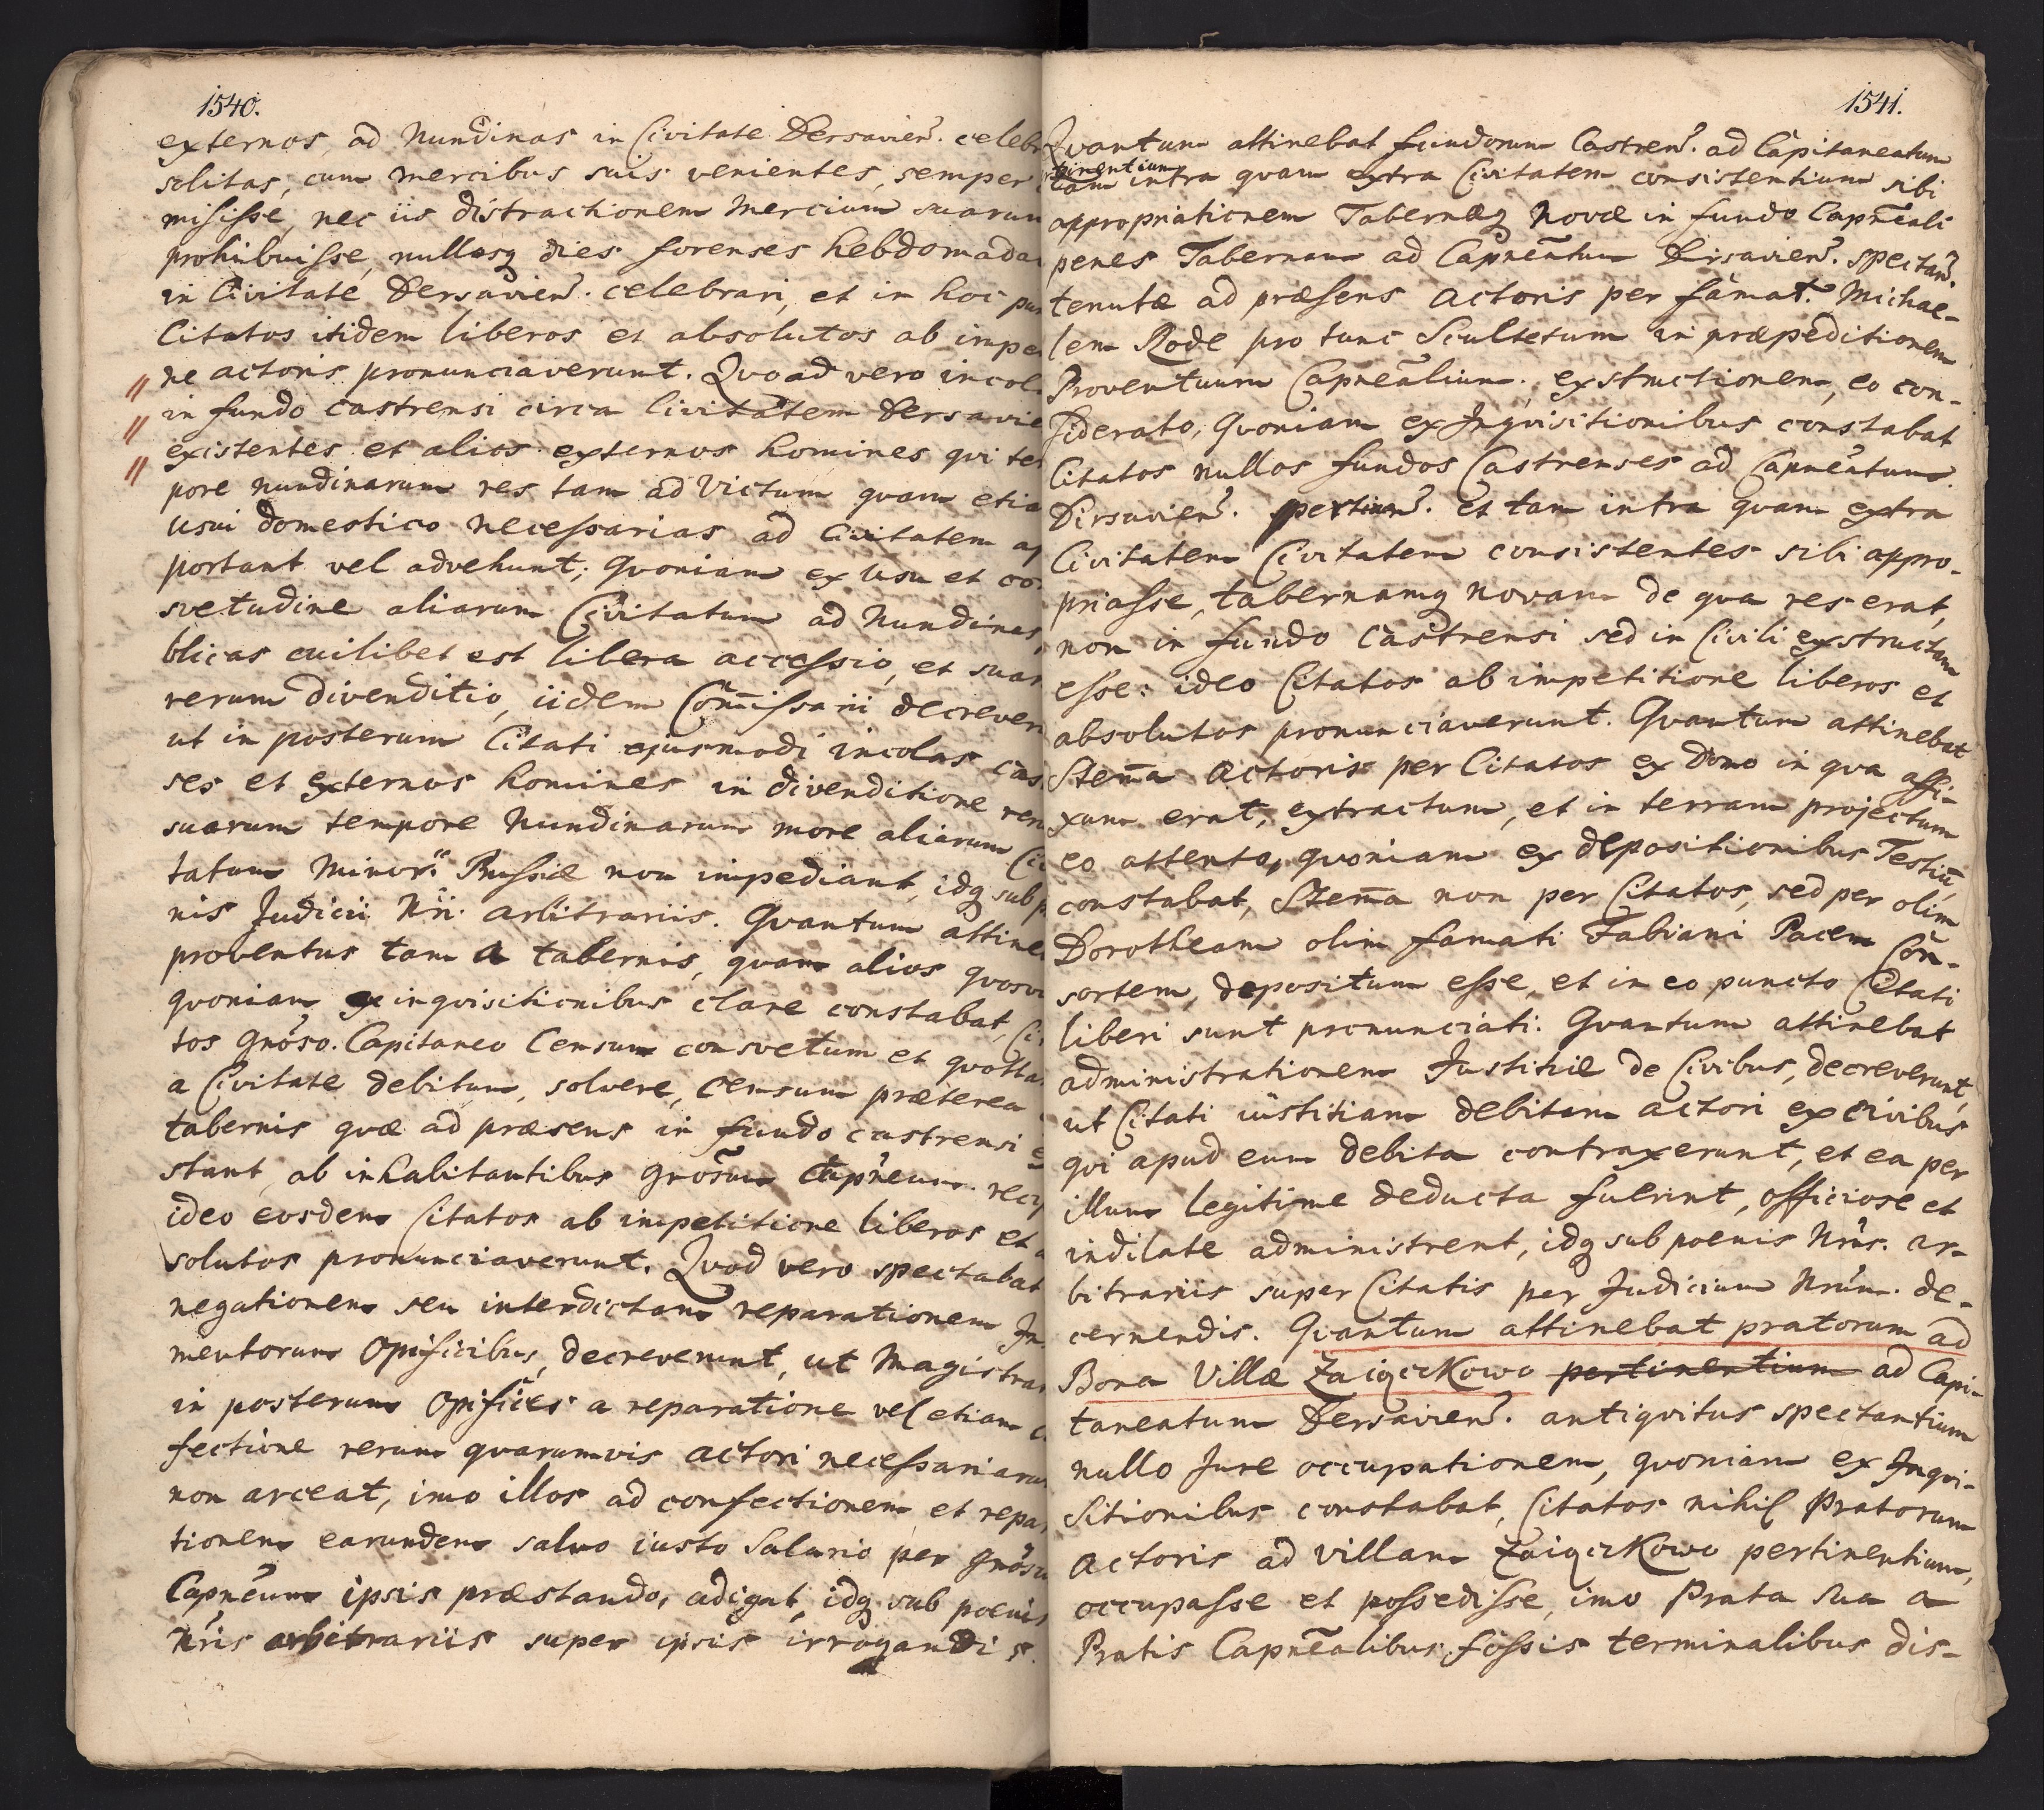 1540.
externos, ad Nundinas in Civitate Dersavien̄. celebr
solitas, cum mercibus suis venientes, semper
misisse, nec iis distractionem Mercium suarum
prohibuisse, nullosq dies forenses hebdomada
in Civitate Dersavien̄. celebrari, et in hoc pun
Citatos itidem liberos et absolutos ab impe
ne actoris pronunciaverunt. Qvoad vero incol
in fundo castrensi circa Civitatem Dersavie
existentes et alios externos homines qvi te
pore nundinarum res tam ad Victum qvam etia
usui domestico necessarias ad Civitatem ap
portant vel advehunt; qvoniam ex usu et co
svetudine aliarum Civitatum ad Nundinas
blicas cuilibet est libera accessio, et suar
rerum divenditio, iidem Com̄issarii decrever
ut in posterum Citati ejusmodi incolas cas
ses et externos homines in divenditione rer
suarum tempore Nundinarum more aliarum Ci
tatum Minor. Prussiæ non impediant, idq sub p
nis Judicii Nri. arbitrariis. Qvantum attine
proventus tam a tabernis, qvam alios qvosv
qvoniam ex inqvisitionibus clare constabat, Ci
tos Gnōso. Capitaneo Censum consvetum et qvotta
a Civitate debitum, solvere, Censum præterea
tabernis qvæ ad præsens in fundo castrensi e
stant, ab inhabitantibus Gnōsum Capn̄eum. reci
ideo eosdem Citatos ab impetitione liberos et a
solutos pronunciaverunt. Qvod vero spectabat
negationem seu interdictam reparationem In
mentorum Opificibus, decreverunt, ut Magistra
in posterum Opifices a reparatione vel etiam c
fectione rerum qvarumvis actori necessariaru
non arceat, imo illos ad confectionem et repar
tionem earundem salvo iusto Salario per Gnōsu
Capn̄eum ipsis præstando, adigat, idq sub poenis
Nr̄is arbitrariis super ipsis irrogandis.
1541.
Qvantum attinebat fundorum Castren̄. ad Capitaneatum
pertinentium
tam intra qvam extra Civitatem consistentium sibi
appropriationem Tabernæq Novæ in fundo Capn̄eali
penes Tabernam ad Capn̄eatum Dirsavien̄. spectan̄.
tenutæ ad præsens Actoris per famat. Michae-
lem Rode pro tunc Scultetum in præpeditionem
Proventuum Capn̄ealium, exstructionem, eo con-
siderato, qvoniam ex Inqvisitionibus constabat
Citatos nullos fundos Castrenses ad Capn̄eatum.
Dirsavien̄. pertinen̄. et tam intra qvam extra
Civitatem Civitatem consistentes sibi appro-
priasse, tabernamq Novam de qva res erat,
non in fundo Castrensi sed in Civili exstructam
esse: ideo Citatos ab impetitione liberos et
absolutos pronunciaverunt. Qvantum attinebat
Stem̄a Actoris per Citatos ex Domo in qva affi-
xum erat, extractum, et in terram projectum
eo attento, qvoniam ex depositionibus Testiū,
constabat, Stem̄a non per Citatos, sed per olim
Dorotheam olim famati Fabiani Pacem Con-
sortem, depositum esse, et in eo puncto Citati
liberi sunt pronunciati. Qvantum attinebat
administrationem Justitiæ de Civibus, decreverunt,
ut Citati iustitiam debitam actori ex civibus
qvi apud eum debita contraxerunt, et ea per
illum legitime deducta fuerint, officiose et
indilate administrent, idq sub poenis Nr̄is. ar-
bitrariis super Citatis per Judicium Nr̄um. de-
cernendis. Qvantum attinebat pratorum ad
Bona Villæ Zaiączkowo pertinentium ad Capi-
taneatum Dersavien̄. antiqvitus spectantium
nullo Jure occupationem, qvoniam ex Inqvi-
sitionibus constabat, Citatos nihil Pratorum
Actoris ad villam Zaiączkowo pertinentium,
occupasse et possedisse, imo Prata sua a
Pratis Capn̄ealibus, fossis terminalibus dis-